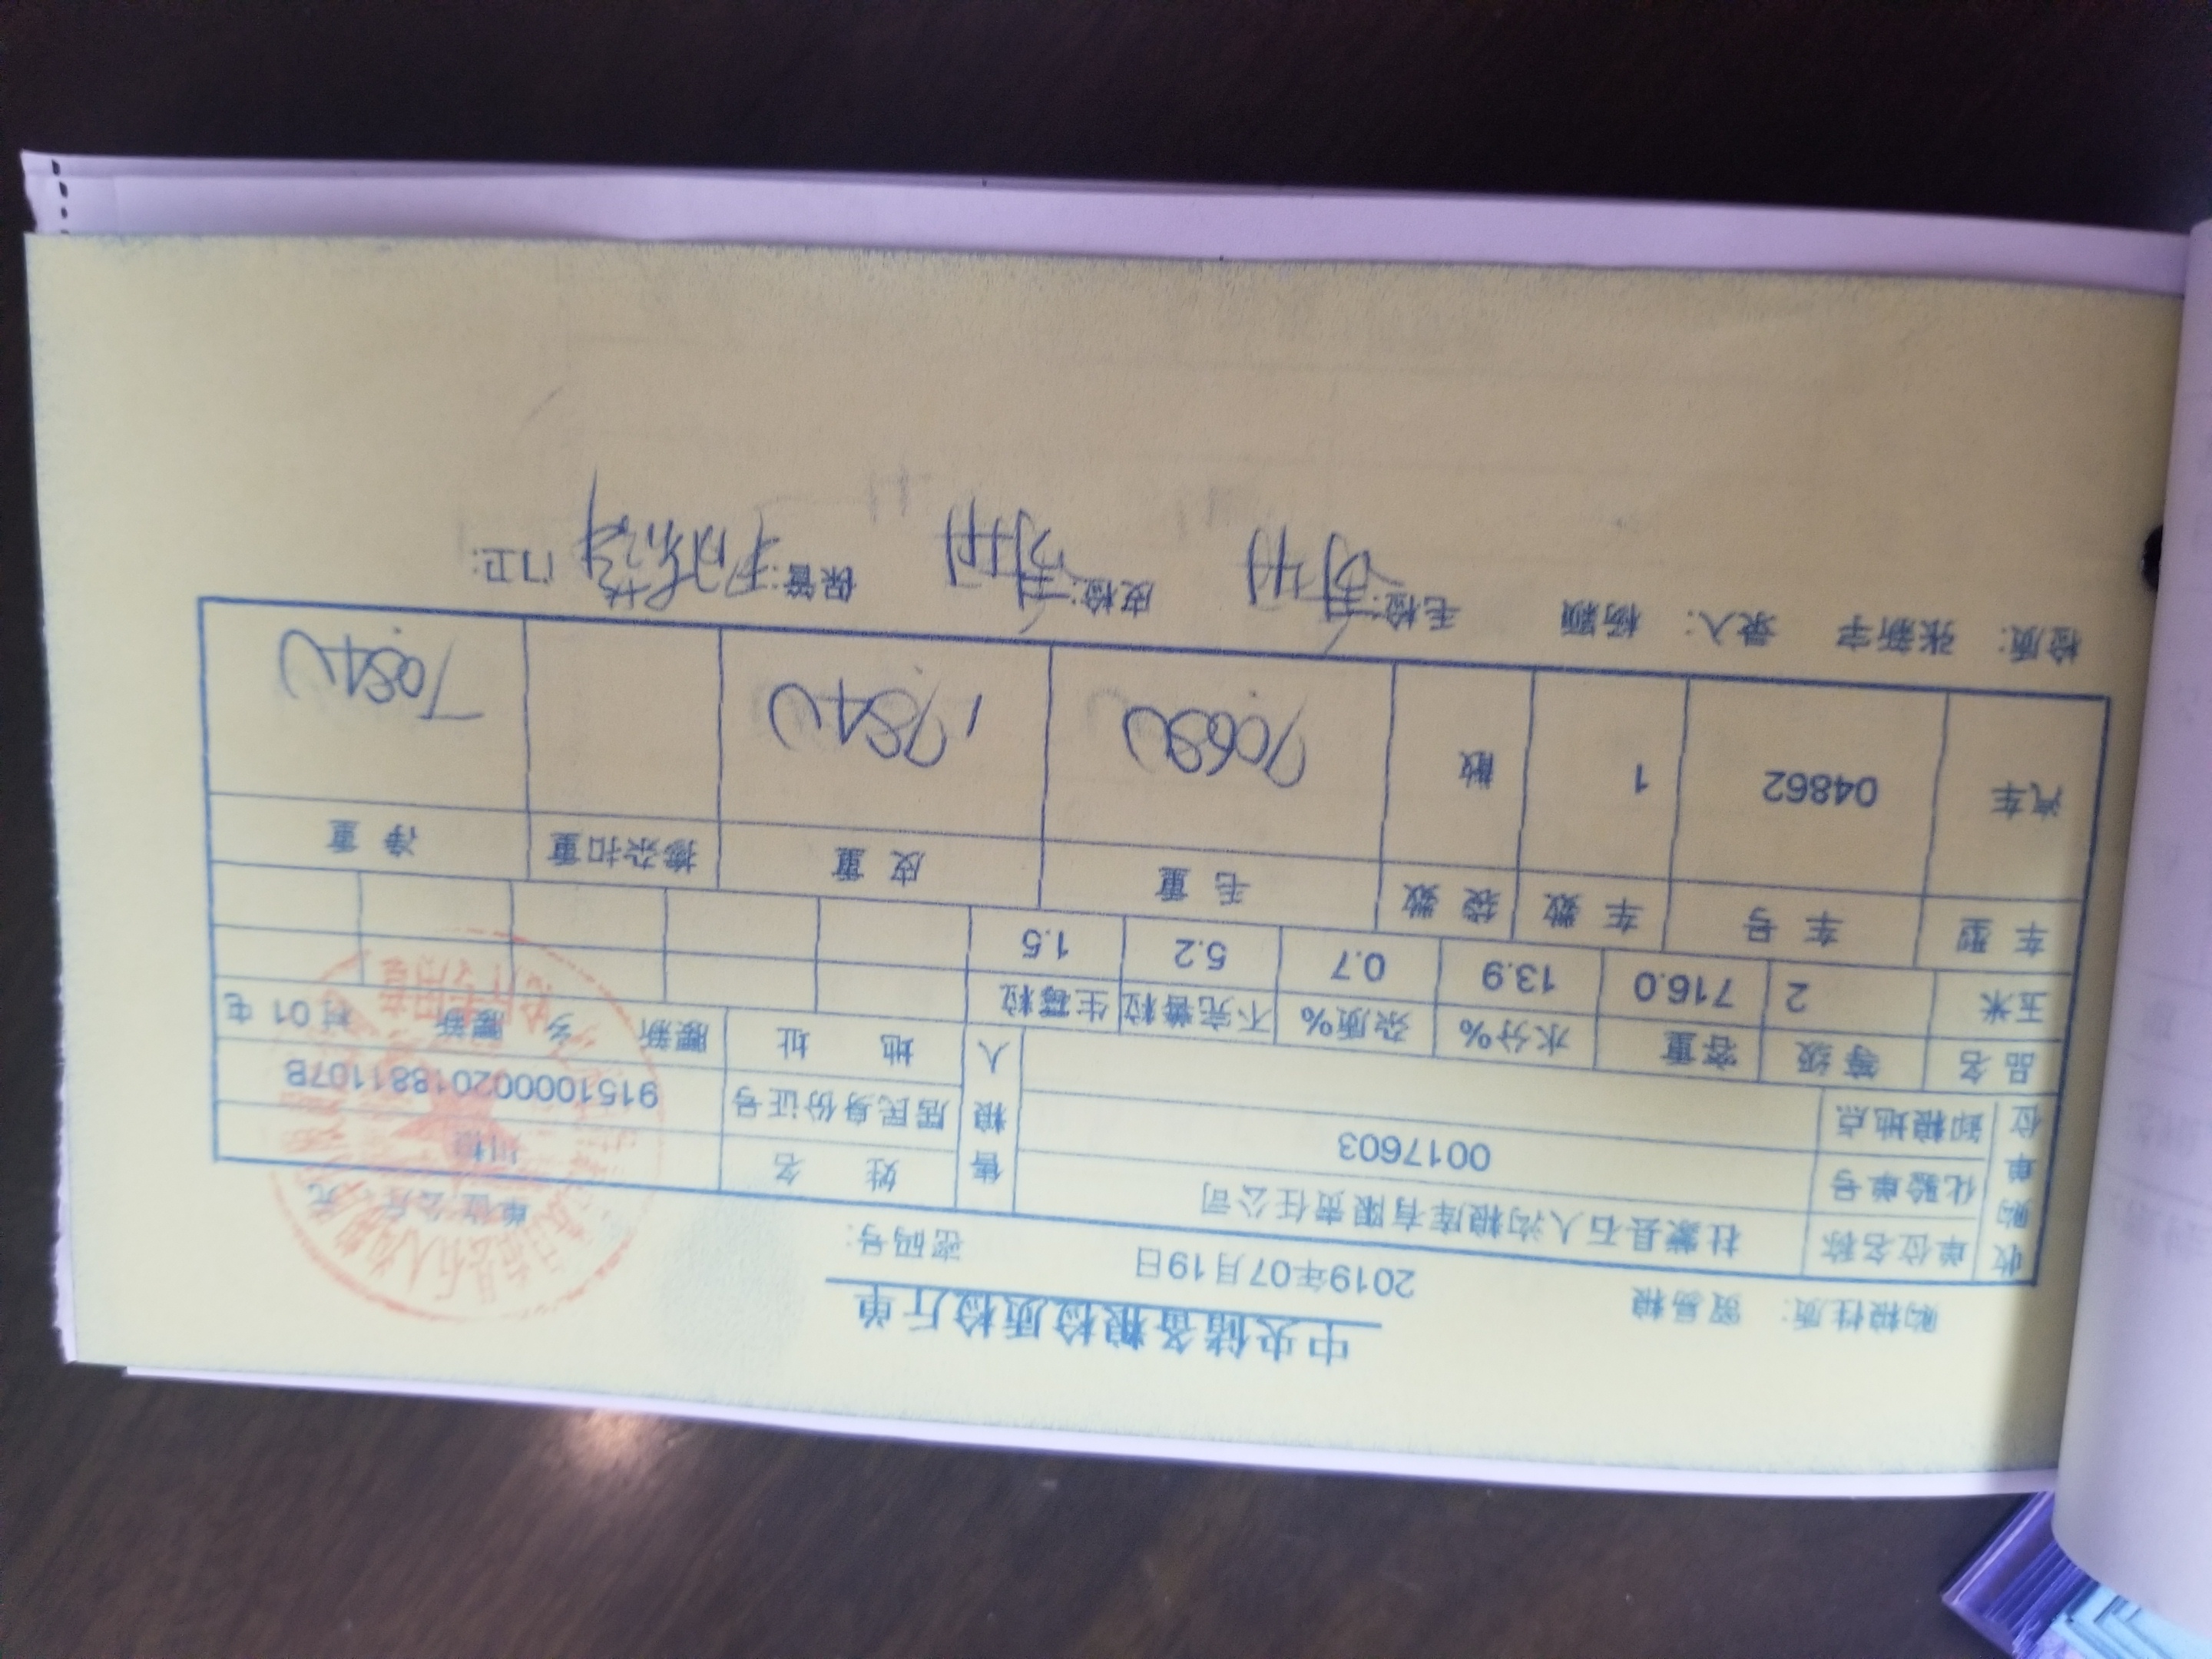 中央储备粮检质检斤单
购粮性质: 贸易粮 2019年07月19日 密码号: 单位:公斤、元
收购单位 单位名称 杜蒙县石人沟粮库有限责任公司 售粮人 姓 名 川粮
化验单号 0017603 居民身份证号 91510000201881107B
卸粮地点 地 址 腰新 乡 腰新 村 01 屯
品名 等级 容重 水分% 杂质% 不完善粒 生霉粒
玉米 2 716.0 13.9 0.7 5.2 1.5
车型 车号 车数 袋数 毛重 皮重 掺杂扣重 净重
汽车 04862 1 散
检质: 张新宇 录入: 杨颖 毛检: 皮检: 保管: 门卫: